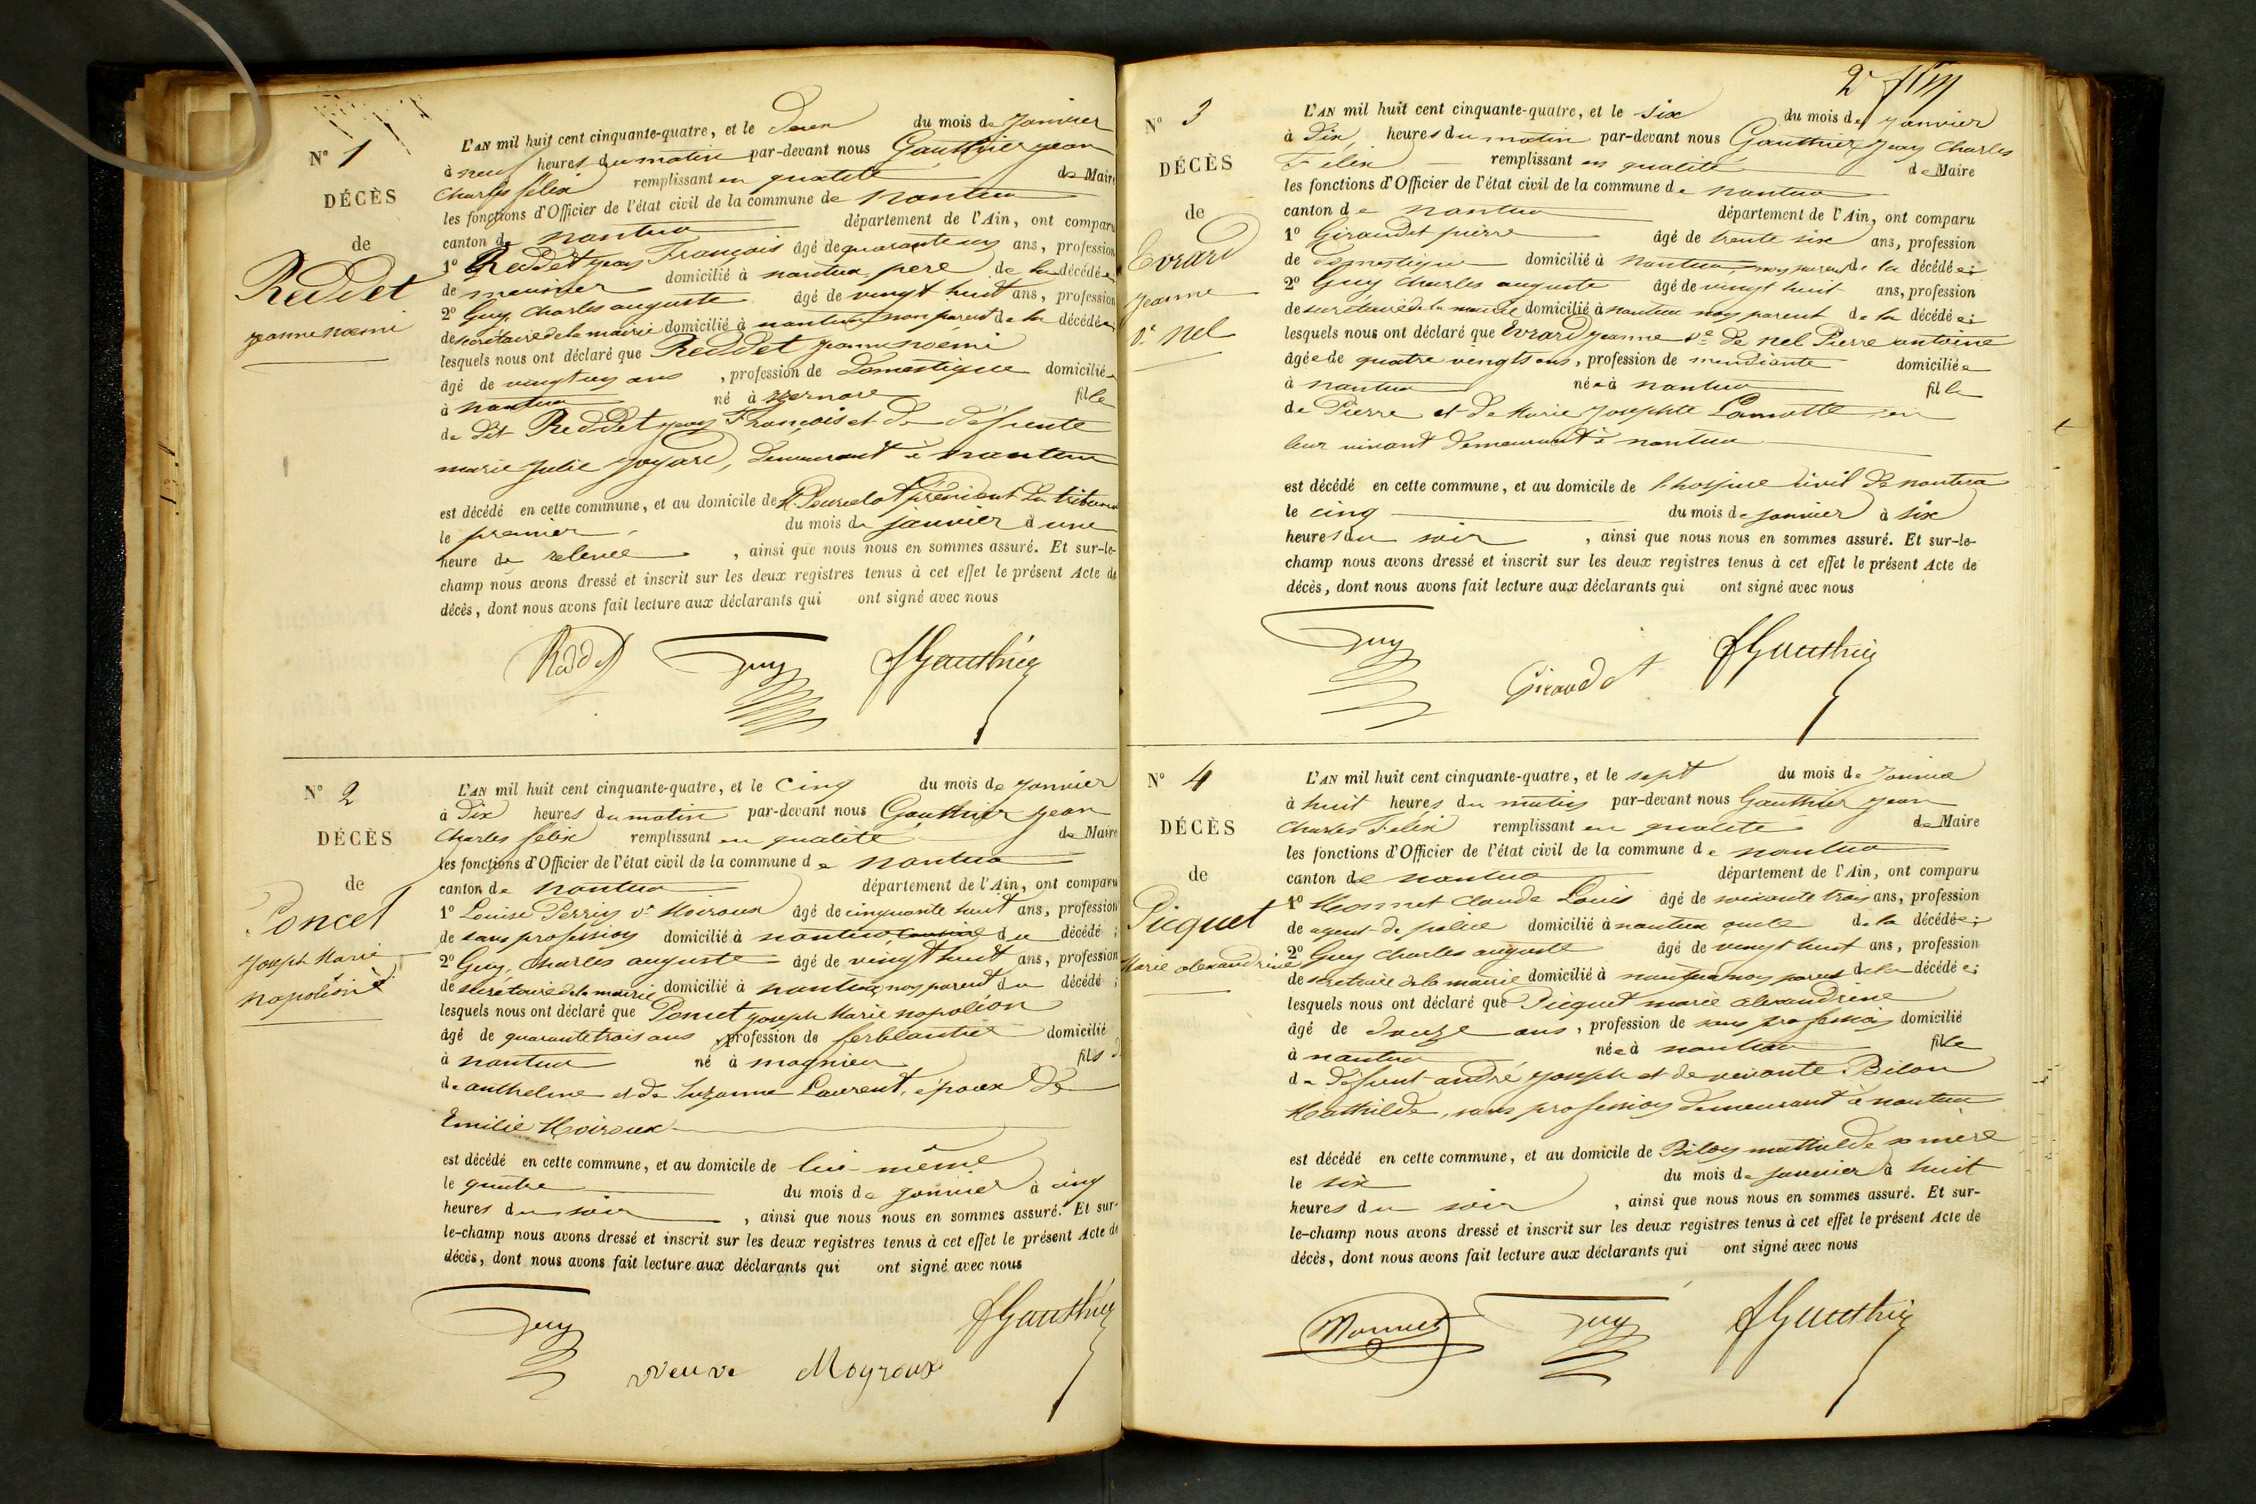 N° 1
DÉCÈS
de
Reddet
jeanne noémi
L'AN mil huit cent cinquante-quatre, et le deux du mois de janvier
à neuf heures du matin par-devant nous Gauthier jean
Charles félix remplissant en qualité de Maire
les fonctions d'Officier de l'état civil de la commune de nantua
canton de nantua département de l'Ain, ont comparu
1° Reddet jean François âgé de quarante un ans, profession
de meunier domicilié à nantua, père de la décédée
2° Guy, Charles auguste âgé de vingt huit ans, profession
de secrétaire de la mairie domicilié à nantua non parent de la décédée
lesquels nous ont déclaré que Reddet jeanne noémi
âgé de vingt un ans, profession de domestique domicilié
à nantua né à fille
de dit Reddet jean François et de défunte
marie julie joyard, demeurant à nantua
est décédé en cette commune, et au domicile de Mr président du tribunal
le premier du mois de janvier à une
heure de relevée, ainsi que nous nous en sommes assuré. Et sur-le-
champ nous avons dressé et inscrit sur les deux registres tenus à cet effet le présent Acte de
décès, dont nous avons fait lecture aux déclarants qui ont signé avec nous
Reddet Guy Gauthier
N° 2
DÉCÈS
de
Poncet
joseph Marie
napoléon
L'AN mil huit cent cinquante-quatre, et le cinq du mois de janvier
à dix heures du matin par-devant nous Gauthier jean
Charles félix remplissant en qualité de Maire
les fonctions d'Officier de l'état civil de la commune de nantua
canton de nantua département de l'Ain, ont comparu
1° Louise Perrin ve Moiroux âgé de cinquante huit ans, profession
de sans profession domicilié à nantua du décédé ;
2° Guy, Charles auguste âgé de vingt huit ans, profession
de secretaire de la mairie domicilié à nantua, non parent du décédé ;
lesquels nous ont déclaré que Poncet joseph Marie napoléon
âgé de quarante trois ans profession de ferblantier domicilié
à nantua né à magnieu fils d
de anthelme et de Suzanne Laurent, époux de
Emilie Moiroux
est décédé en cette commune, et au domicile de lui-même
le quatre du mois de janvier à cinq
heures du soir, ainsi que nous nous en sommes assuré. Et sur-
le-champ nous avons dressé et inscrit sur les deux registres tenus à cet effet le présent Acte de
décès, dont nous avons fait lecture aux déclarants qui ont signé avec nous
Guy veuve Moyroux Gauthier
2e
N° 3
DÉCÈS
de
Evrard
jeanne
ve nel
L'AN mil huit cent cinquante-quatre, et le six du mois de janvier
à dix heures du matin par-devant nous Gauthier jean Charles
Félix remplissant en qualité de Maire
les fonctions d'Officier de l'état civil de la commune de nantua
canton de nantua département de l'Ain, ont comparu
1° Giraudet pierre âgé de trente six ans, profession
de domestique domicilié à nantua, non parent de la décédée ;
2° Guy Charles auguste âgé de vingt huit ans, profession
de secrétaire de la mairie domicilié à nantua non parent de la décédée ;
lesquels nous ont déclaré que Evrard jeanne ve de nel Pierre antoine
âgée de quatre vingts ans, profession de mendiante domiciliée
à nantua née à nantua fille
de Pierre et de Marie josephte Lamotte en
leur vivant demeurant à nantua
est décédé en cette commune, et au domicile de l'hospice civil de nantua
le cinq du mois de janvier à six
heures du soir, ainsi que nous nous en sommes assuré. Et sur-le-
champ nous avons dressé et inscrit sur les deux registres tenus à cet effet le présent Acte de
décès, dont nous avons fait lecture aux déclarants qui ont signé avec nous
Guy Giraudet Gauthier
N° 4
DÉCÈS
de
Picquet
Marie alexandrine
L'AN mil huit cent cinquante-quatre, et le sept du mois de janvier
à huit heures du matin par-devant nous Gauthier jean
Charles Félix remplissant en qualité de Maire
les fonctions d'Officier de l'état civil de la commune de nantua
canton de nantua département de l'Ain, ont comparu
1° Monnet Claude Louis âgé de soixante trois ans, profession
de agent de police domicilié à nantua oncle de la décédée ;
2° Guy Charles auguste âgé de vingt huit ans, profession
de secretaire de la mairie domicilié à nantua non parent de la décédée ;
lesquels nous ont déclaré que Picquet marie alexandrine
âgé de douze ans, profession de sans profession domicilié
à nantua née à nantua fille
de défunt andré joseph et de vivante Bilon
Mathilde, sans profession demeurant à nantua
est décédé en cette commune, et au domicile de Bilon mathilde sa mère
le six du mois de janvier à huit
heures du soir, ainsi que nous nous en sommes assuré. Et sur-
le-champ nous avons dressé et inscrit sur les deux registres tenus à cet effet le présent Acte de
décès, dont nous avons fait lecture aux déclarants qui ont signé avec nous
Monnet Guy Gauthier